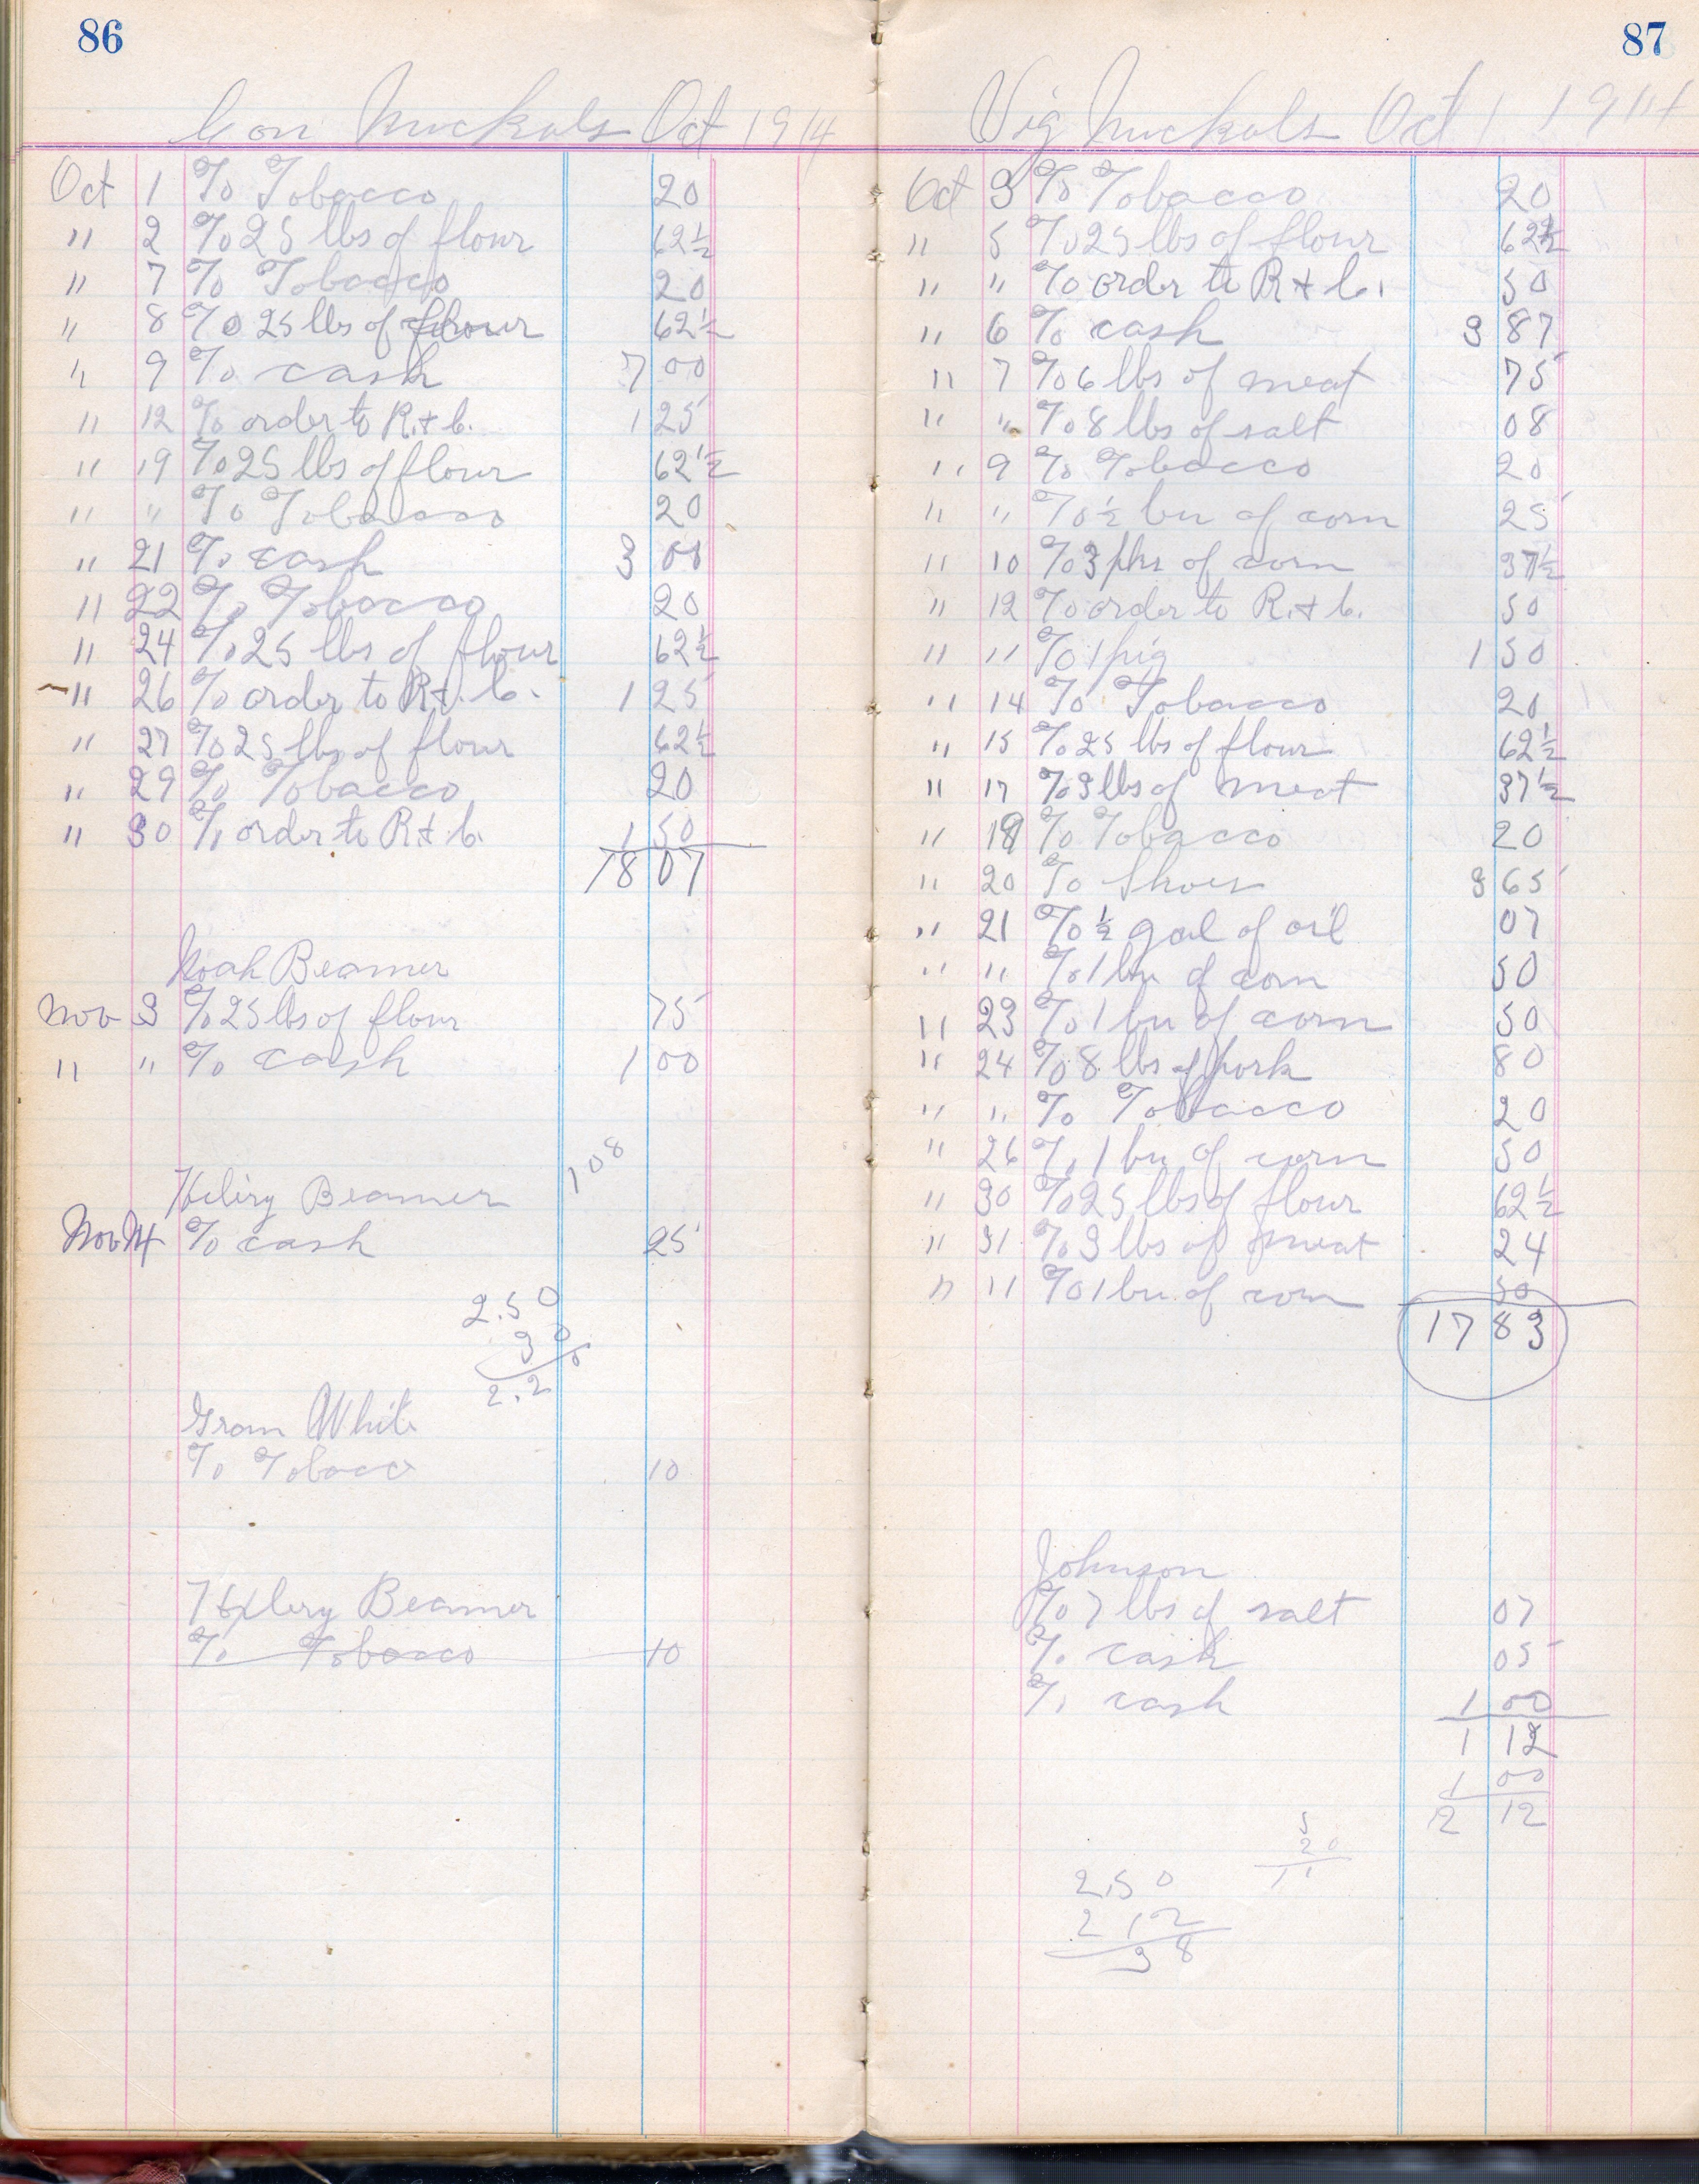 86
Con Nuckols Oct 1914
Oct 1 To Tobacco 20
" 2 To 25 lbs of flour 62½
" 7 To Tobacco 20
" 8 To 25 lbs of flour 62½
" 9 To cash 7 00
" 12 To order to R. & C. 1 25
" 19 To 25 lbs of flour 62½
" " To Tobacco 20
" 21 To cash 3 00
" 22 To Tobacco 20
" 24 To 25 lbs of flour 62½
" 26 To order to R. & C. 1 25
" 27 To 25 lbs of flour 62½
" 29 To Tobacco 20
" 30 To order to R & C. 1 50
18 07
Noah Beamer
Nov 3 To 25 lbs of flour 75
" " To cash 1 00
108
Hilery Beamer
Nov 14 To cash 25
2.50
30
2.20
Gran White
To Tobacco 10
Hilery Beamer
To Tobacco 10
87
Vig Nuckols Oct 1 1914
Oct 3 To Tobacco 20
" 5 To 25 lbs of flour 62½
" " To order to R & C. 50
" 6 To cash 3 87
" 7 To 6 lbs of meat 75
" " To 8 lbs of salt 08
" 9 To Tobacco 20
" " To ½ bu of corn 25
" 10 To 3 pks of corn 37½
" 12 To order to R. & C. 50
" " To 1 pig 1 50
" 14 To Tobacco 20
" 15 To 25 lbs of flour 62½
" 17 To 3 lbs of meat 37½
" 19 To Tobacco 20
" 20 To Shoes 3 65
" 21 To ½ gal of oil 07
" " To 1 bu of corn 50
" 23 To 1 bu of corn 50
" 24 To 8 lbs of pork 80
" " To Tobacco 20
" 26 To 1 bu of corn 50
" 30 To 25 lbs of flour 62½
" 31 To 3 lbs of meat 24
" " To 1 bu of corn 50
17 83
Johnson
To 7 lbs of salt 07
To cash 05
To cash 1 00
1 12
1 00
2 12
5
20
11
2.50
2 12
38